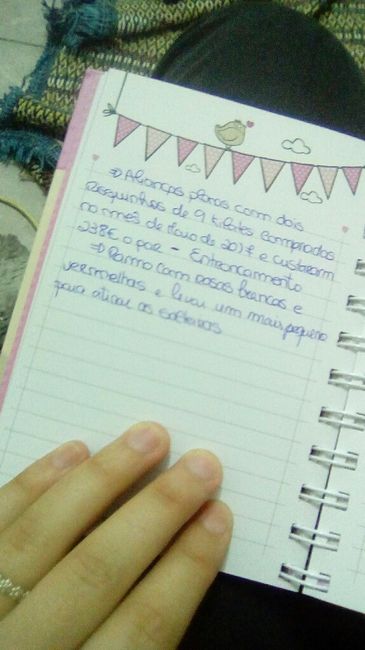 ⇒ Alianças planas com dois
risquinhos de 9 kilates compradas
no mês de Maio de 2017 e custaram
238€ o par - Entroncamento
⇒ Ramo com rosas brancas e
vermelhas e levou um mais pequeno
para atirar as solteiras